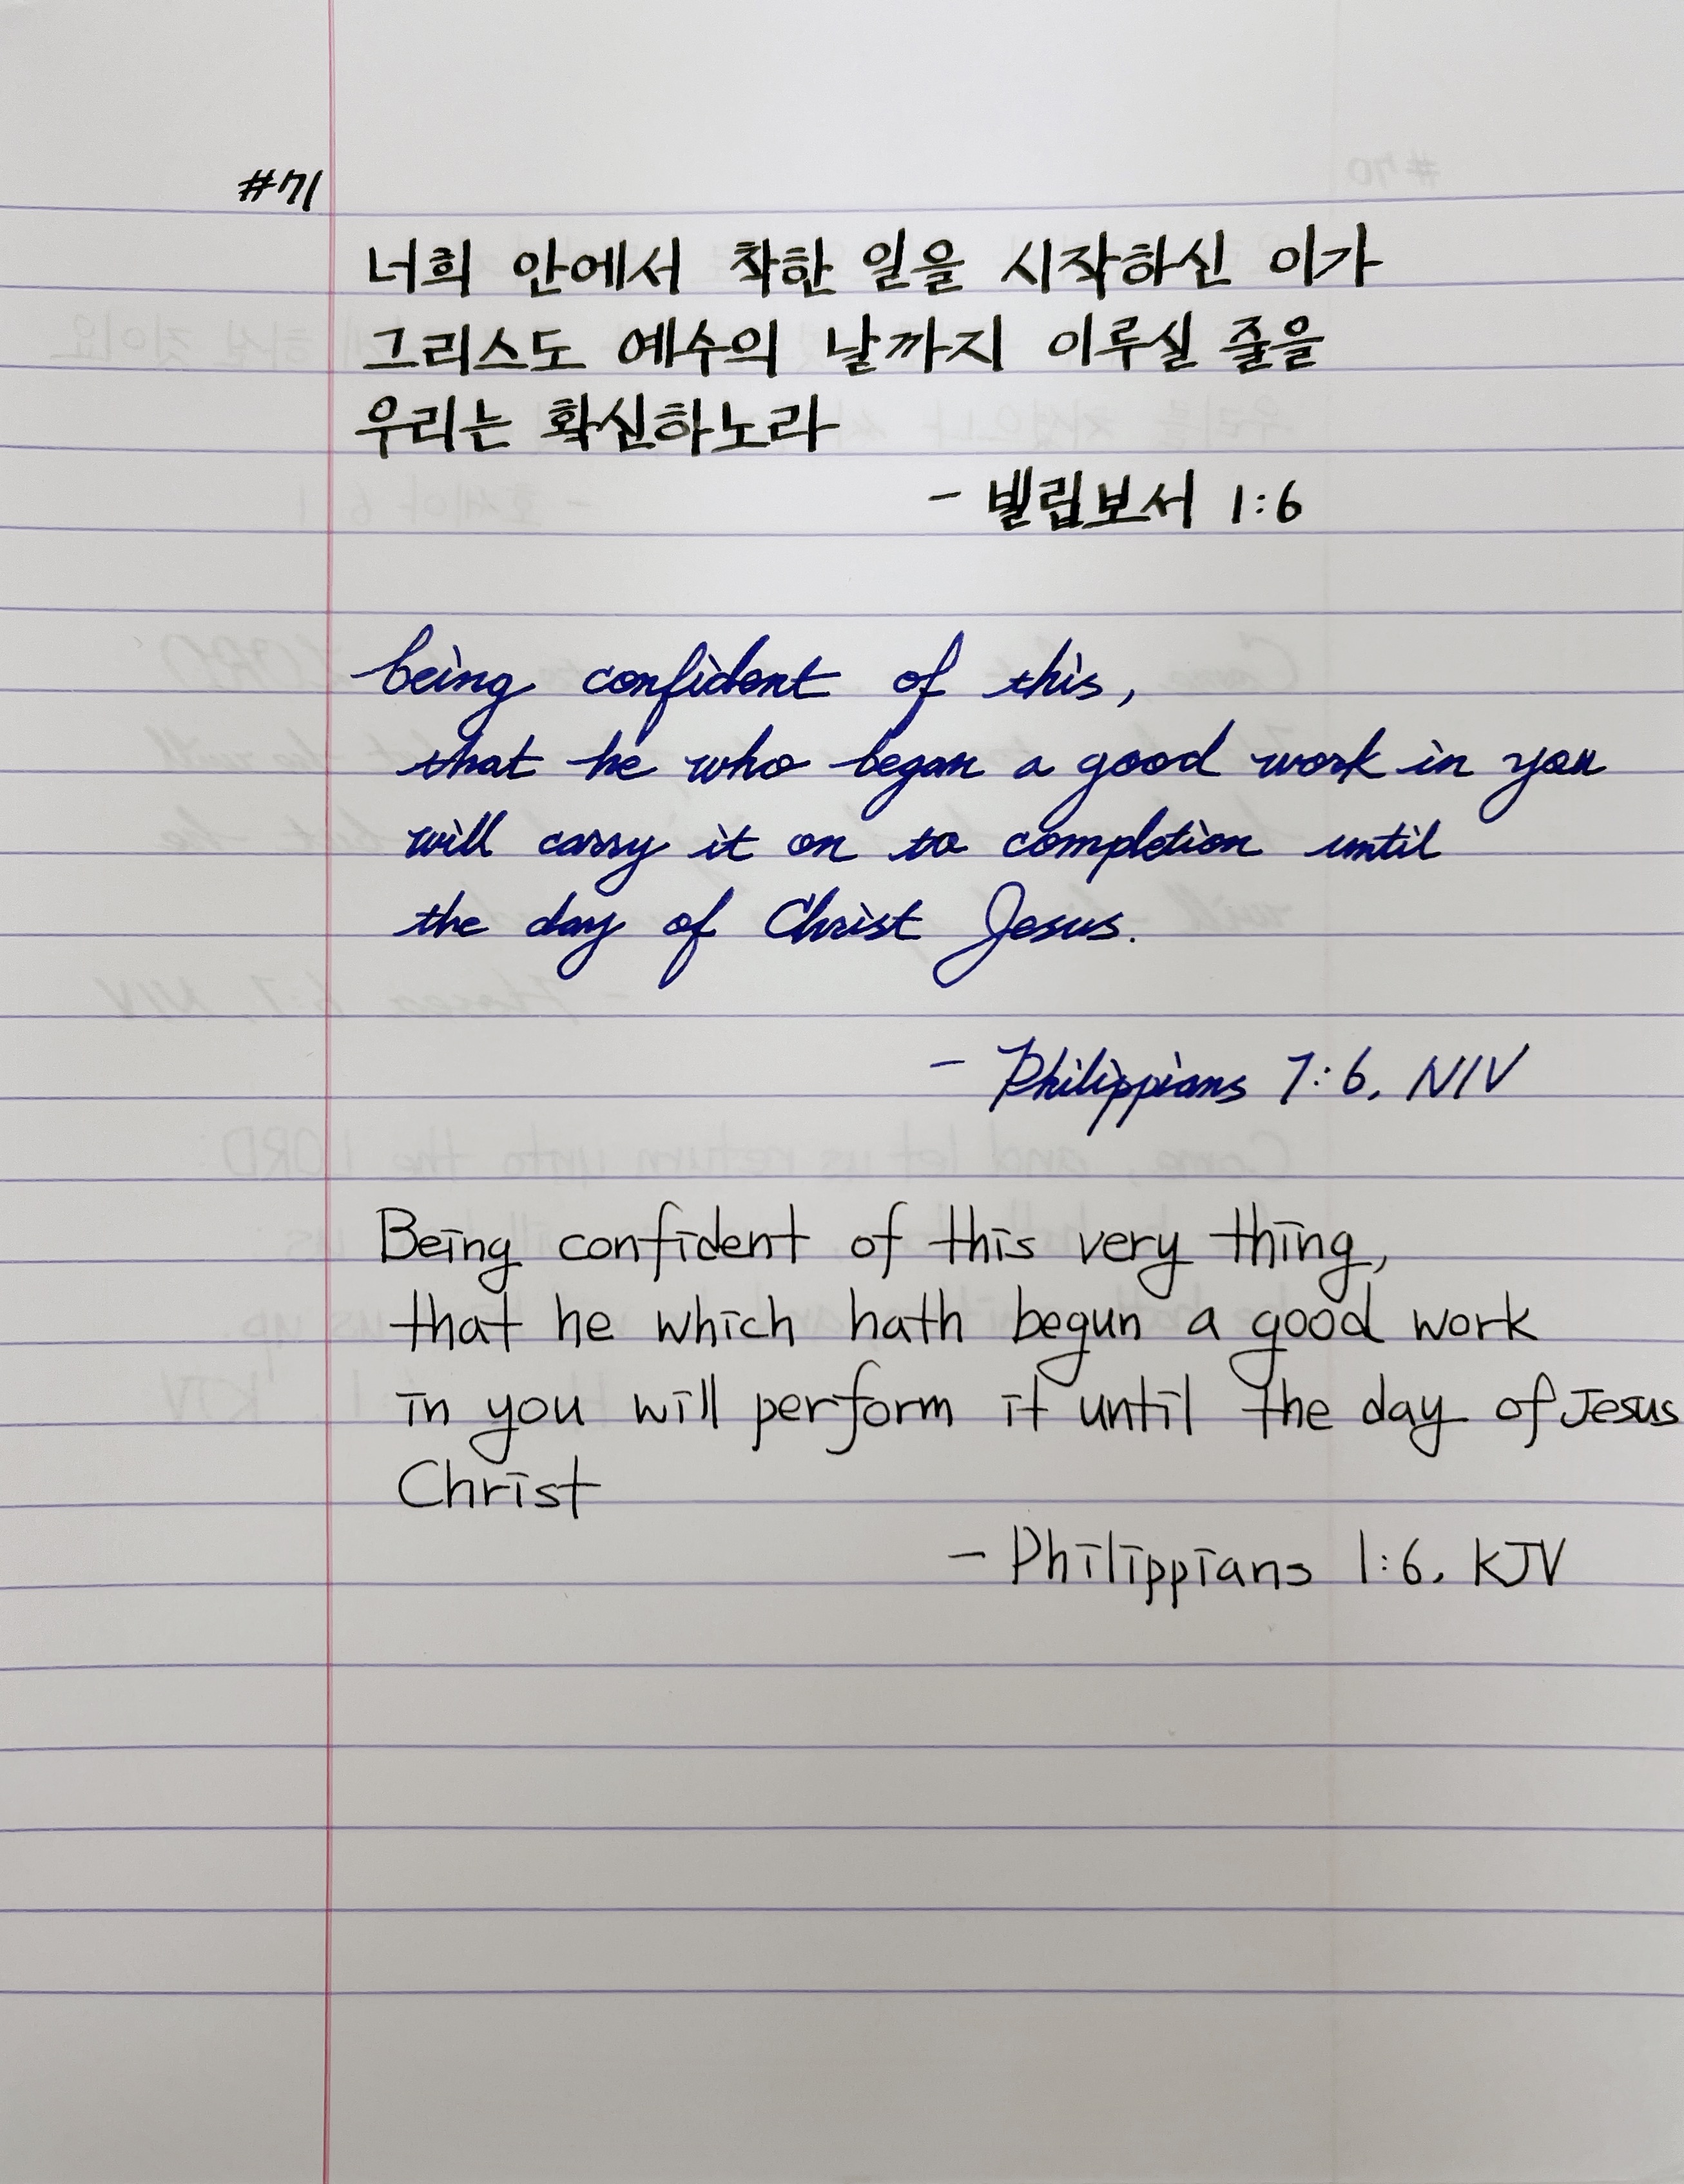 #71
너희 안에서 착한 일을 시작하신 이가
그리스도 예수의 날까지 이루실 줄을
우리는 확신하노라
- 빌립보서 1:6
being confident of this,
that he who began a good work in you
will carry it on to completion until
the day of Christ Jesus.
- Philippians 1:6, NIV
Being confident of this very thing,
that he which hath begun a good work
in you will perform it until the day of Jesus
Christ
- Philippians 1:6, KJV